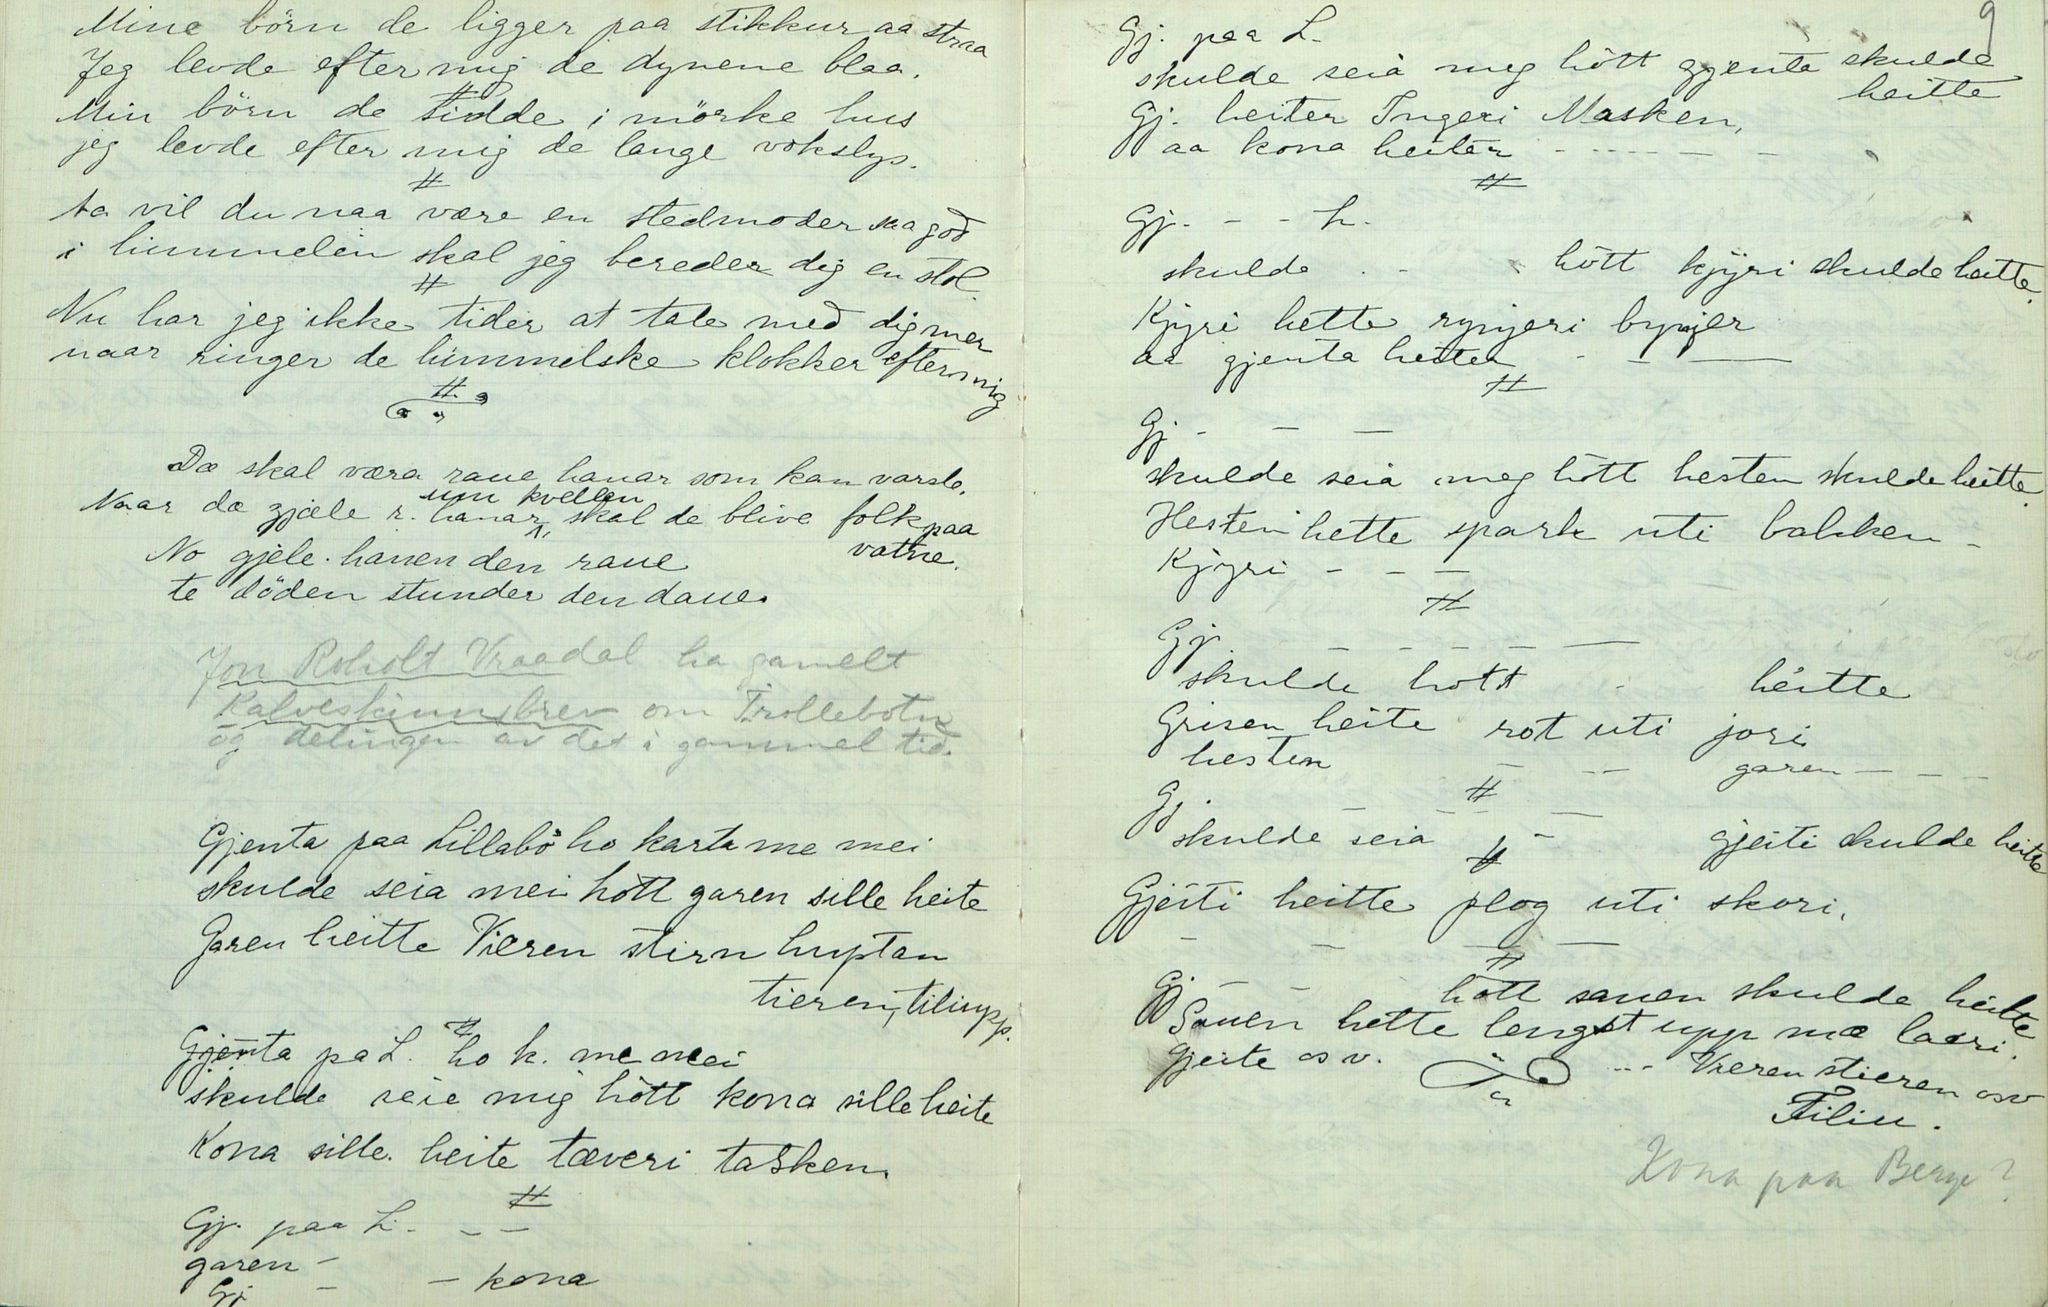 Mine börn de ligger paa stikkur aa straa
Jeg levde efter mig de dynene blaa.
#
Min börn de sidde i mörke hus
jeg levde efter mig de lange vokslys.
#
Aa vil du naa være en stedmoder saa god
i himmelen skal jeg bereder dig en stol
#
Nu har jeg ikke tider at tale med dig mer
naar ringer de himmelske klokker efter mig
#
Dæ skal væra raue hanar som kan varsle.
Naar dæ gjæle r. hanar um kvellen skal de blive folk paa
vatne.
No gjele hanen den raue
te döden stunder den daue.
Jon Roholt Vraadal ha gamelt
Kalveskinnsbrev om Trollebotn
og delingen av det i gammel tid.
Gjenta paa Lillabö ho karta me mei
skulde seia mei hött garen sille heite
Garen heitte Vieren stirn huptan
tieren, tiliupp.
#
Gjenta pa L. ho k. me mei
skulde seie mig hött kona silleheite
Kona sille heite tæveri tasken.
#
Gj. paa L. - -
garen -
Gj - - kona
9
Gj. paa L.
skulde seia meg hött gjenta skulde
heitte
Gj. heiter Ingeri Masken,
aa kona heiter - - - - - -
#
Gj. - - h.
skulde . - . hött kjýri skulde heitte.
Kjyri hette rynjeri bynjer
aa gjenta heiter - - -
#
Gj - - -
skulde seia meg hött hesten skulde heitte.
Hesten hette spark uti bakken -
Kjyri - - -
#
Gj. - - - - -
skulde hött - heitte
Grisen heite rot uti jori
hesten - - garen - - -
#
Gj. - - -
skulde seia - gjeiti skulde heitte
#
Gjeiti heitte plog uti skori.
- - - -
#
Gj - - hött sauen skulde heitte
Sauen hette lengst upp mæ laari.
Gjeite os v. --- Vieren stieren osv
Filiu.
Kona paa Berge?